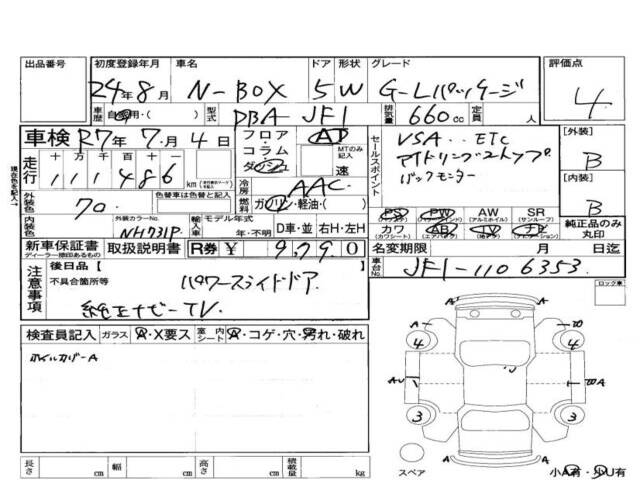 出品番号 初度登録年月 車名 ドア 形状 グレード 評価点
24年8月 N-BOX 5 W G-Lパッケージ 4
車歴 自家用・( ) 型式 DBA-JF1 排気量 660cc 定員 人
車検 R7年 7月 4日 フロア・コラム・ダッシュ AT MTのみ記入 速
セールスポイント VSA.. ETC
アイドリングストップ
バックモニター
【外装】 B
【内装】 B
走行 十 万 千 百 十 一
111486 km
冷房 AAC
燃料 ガソリン・軽油・( )
外装色 70. 色替車は色替と記入
内装色 外装カラーNo. NH731P 輸入車 モデル年式 年・不明 D車・並 右H・左H
PS PW AW SR
(アルミホイル) (サンルーフ)
カワ AB TV
(カワシート) (エアバック)
純正品のみ丸印
新車保証書 取扱説明書 R券 ¥ 9,790
ディーラー捺印あるもの
名変期限 月 日迄
車台No. JF1-1106353
注意事項 後日品【 】
不具合箇所等 パワースライドドア
純正ナビーTV
ロック車
検査員記入 ガラス A・X要ス 室内シート A・コゲ・穴・汚れ・破れ
A
4 4
AU A
3 3
スペア 小A有・小U有
長さ cm 幅 cm 高さ cm 積載量 kg